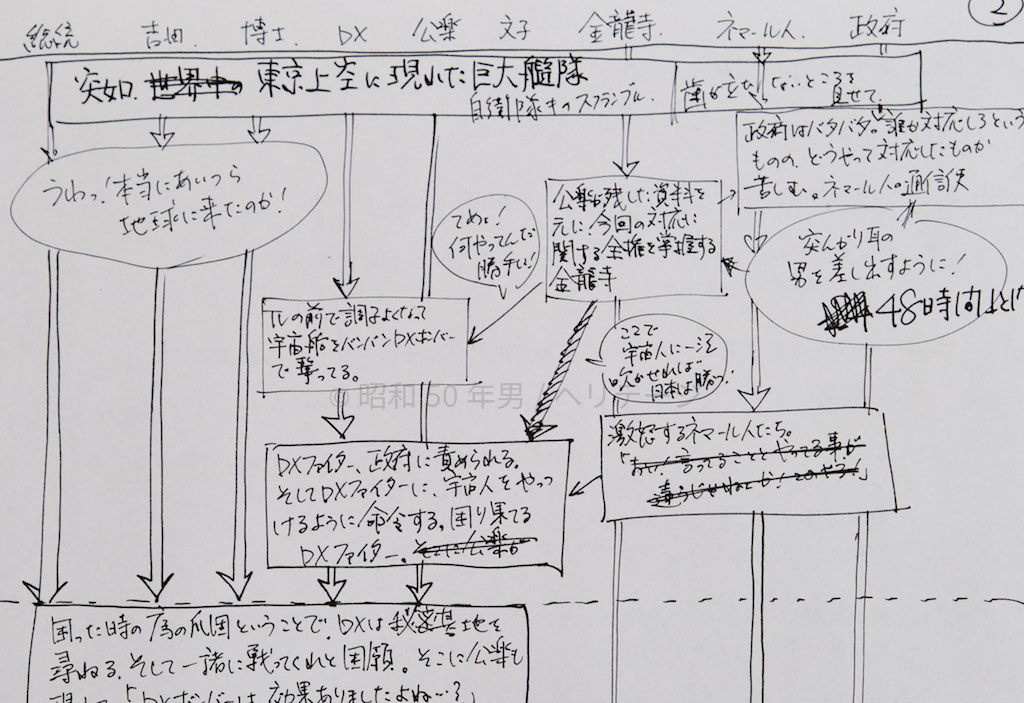 ②
総統 吉田 博士 DX 公楽 文子 金龍寺 ネマール人 政府
突如、世界中の 東京上空に現れた巨大艦隊
自衛隊キのスクランブル
歯が立たないところを
見せて
政府はバタバタ。誰か対応しろという
ものの、どうやって対応したものか
苦しむ。ネマール人の通信使
うわっ!本当にあいつら
地球に来たのか!
てめェ!
何やってんだ
勝手に!
公楽が残した資料を
元に、今回の対応に
関する全権を掌握する
金龍寺
突んがり耳の
男を差し出すように!
48時間以内
TVの前で調子よくなって
宇宙船をバンバンDXボンバー
で撃ってる。
ここで
宇宙人に一泡
吹かせれば
日本は勝つ!
© 昭和 50 年男 / ヘリテージ
激怒するネマール人たち。
「おい!言ってることとやってる事が
違うじゃねえか!このやろう!」
DXファイター、政府に責められる。
そしてDXファイターに、宇宙人をやっ
つけるように命令する。困り果てる
DXファイター。そこに公楽が
困った時の為の爪国ということで、DXは秘密基地を
尋ねる。そして一緒に戦ってくれと困願。そこに公楽も
現れて「DXボンバーは効果ありましたよね…?」